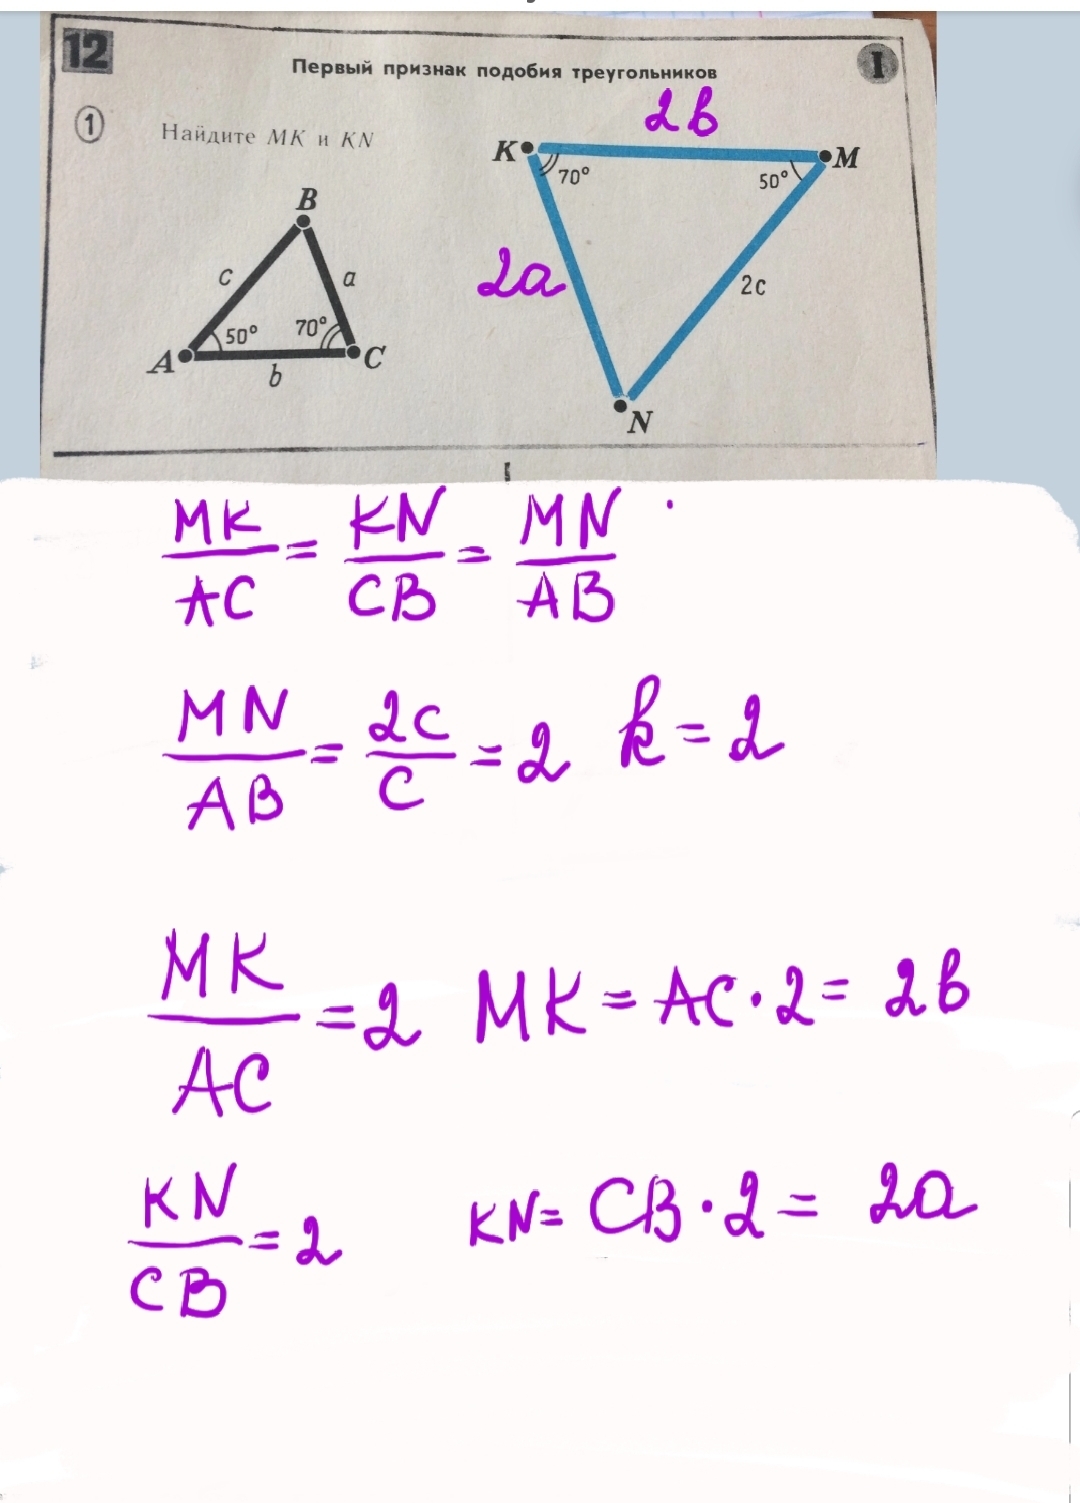 12
Первый признак подобия треугольников
I
1
Найдите MK и KN
2b
K
M
70°
50°
B
c
a
2a
2c
50°
70°
A
C
b
N
MK/AC = KN/CB = MN/AB
MN/AB = 2c/c = 2 k = 2
MK/AC = 2 MK = AC · 2 = 2b
KN/CB = 2 KN = CB · 2 = 2a